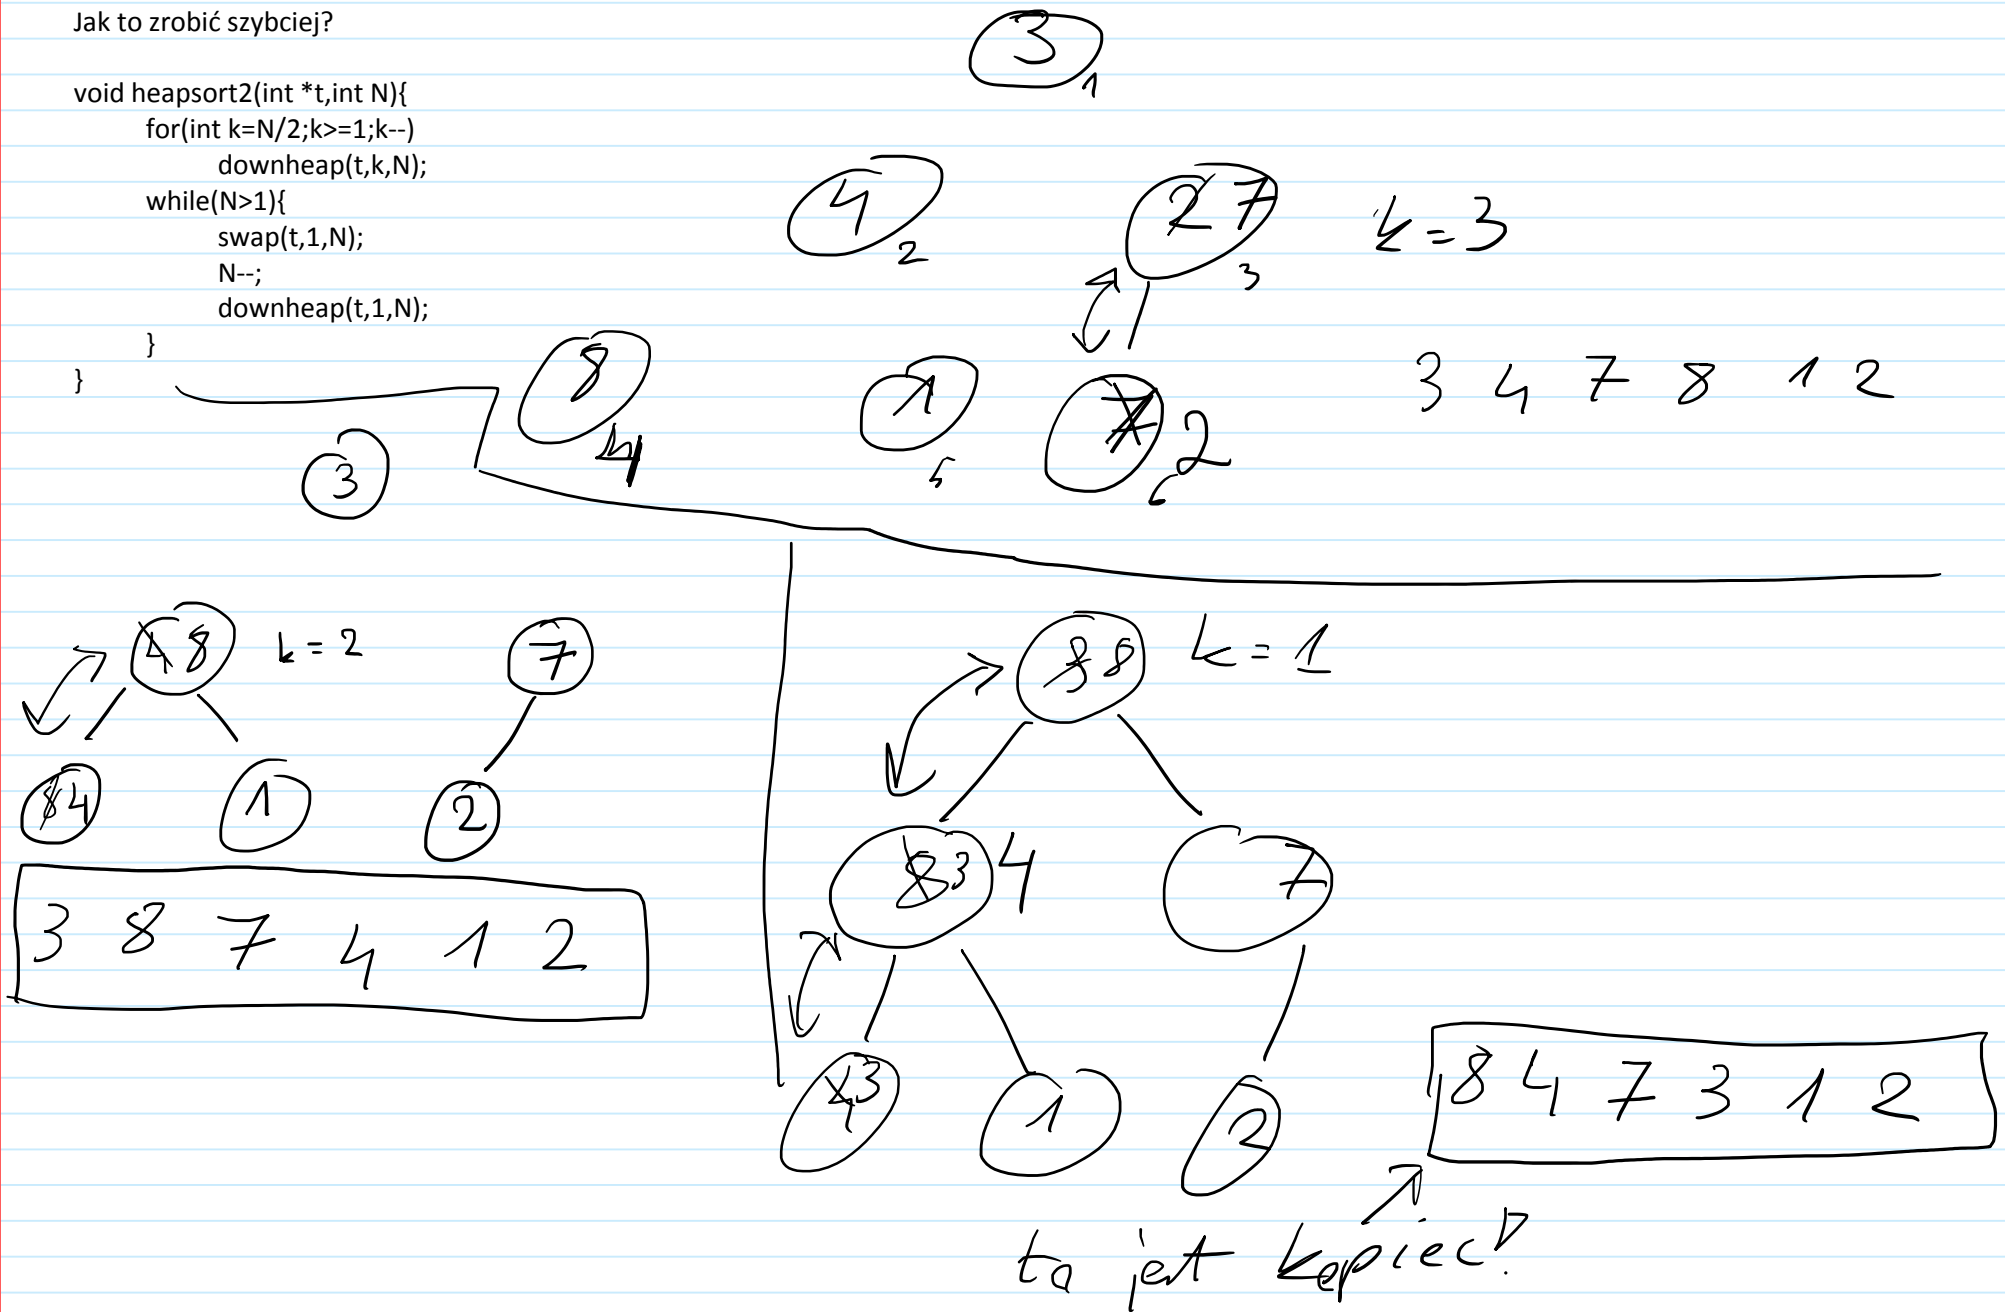 Jak to zrobić szybciej?
void heapsort2(int *t,int N){
for(int k=N/2;k>=1;k--)
downheap(t,k,N);
while(N>1){
swap(t,1,N);
N--;
downheap(t,1,N);
}
}
3
1
4
2
2 7
3
k=3
8
4
1
5
7 2
6
3 4 7 8 1 2
3
4 8
k=2
7
8 4
1
2
3 8 7 4 1 2
3 8
k=1
8 3 4
7
4 3
1
2
8 4 7 3 1 2
to jest kopiec!